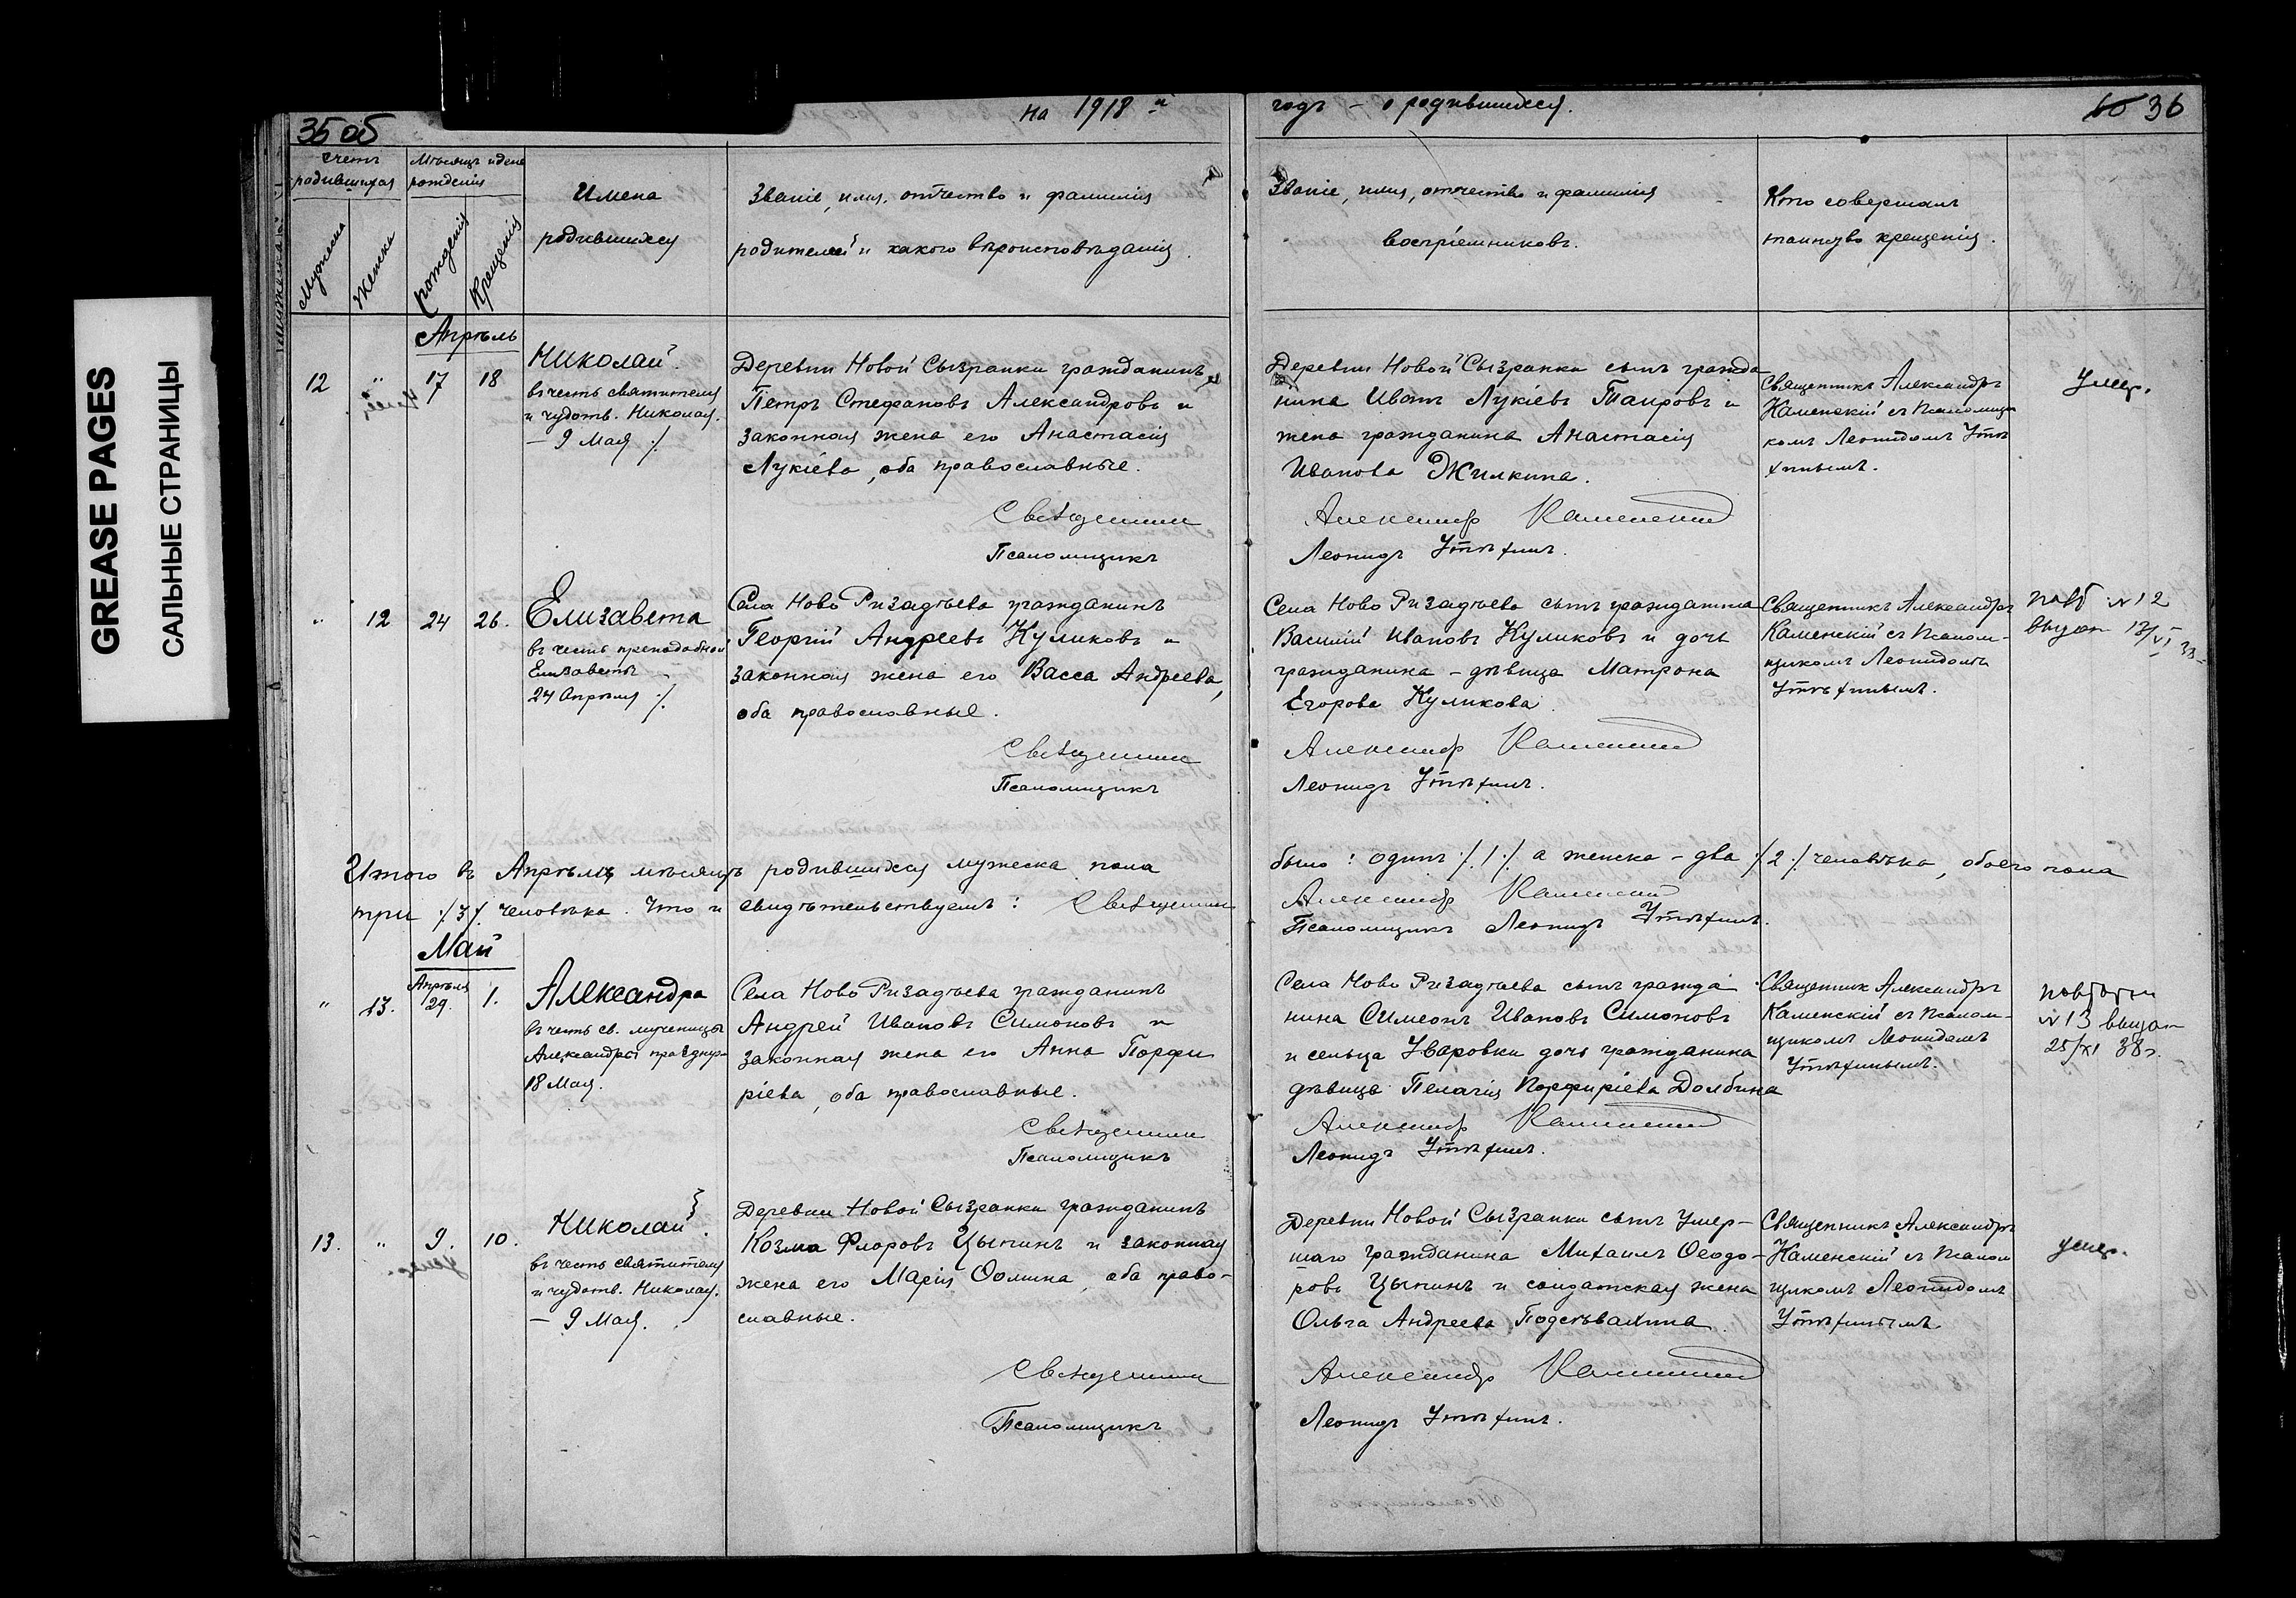 GREASE PAGES
САЛЬНЫЕ СТРАНИЦЫ
35 об
на 1918 й
годъ – о родившихся.
36
Счетъ родившихся
Мѣсяцъ и день рожденія
Мужеска
Женска
рожденія
Крещенія
Имена
родившихся
Званіе, имя, отчество и фамилія
родителей и какого вѣроисповѣданія.
Званіе, имя, отчество и фамилія
воспріемниковъ.
Кто совершалъ
таинство крещенія.
Апрѣль
12 " 17 18
Николай.
въ честь святителя
и чудотв. Николая.
– 9 Мая ./.
Деревни Новой Сызранки гражданинъ
Петръ Стефановъ Александровъ и
законная жена его Анастасія
Лукіева, оба православные.
Священникъ
Псаломщикъ
Деревни Новой Сызранки сынъ гражда
нина Иванъ Лукіевъ Таировъ и
жена гражданина Анастасія
Иванова Жилкина.
Александръ Каменскій
Леонидъ Утѣхинъ.
Священникъ Александръ
Каменскій съ Псаломщи
комъ Леонидомъ Утѣ
хинымъ.
Умер.
" 12 24 26.
Елизавета
въ честь преподобной
Елизаветы
24 Апрѣля ./.
Села Ново Ризадѣева гражданинъ
Георгій Андреевъ Куликовъ и
законная жена его Васса Андреева,
оба православные.
Священникъ
Псаломщикъ
Села Ново Ризадѣева сынъ гражданина
Василій Ивановъ Куликовъ и дочь
гражданина – дѣвица Матрона
Егорова Куликова.
Александръ Каменскій
Леонидъ Утѣхинъ.
Священникъ Александръ
Каменскій съ Псалом-
щикомъ Леонидомъ
Утѣхинымъ.
повт №12
выдан 13/VI 38
Итого въ Апрѣлѣ мѣсяцѣ родившихся мужеска пола
было: одинъ ./.1./. а женска – два ./.2./. человѣка, обоего пола
три ./.3./. человѣка. Что и свидѣтельствуемъ: Священникъ
Александръ Каменскій
Псаломщикъ Леонидъ Утѣхинъ.
Май
" 13. Апрѣля 29. 1.
Александра
въ честь св. мученицы
Александры празднуе
18 Мая.
Села Ново Ризадѣева гражданинъ
Андрей Ивановъ Симоновъ и
законная жена его Анна Порфи
ріева, оба православные.
Священникъ
Псаломщикъ
Села Ново Ризадѣева сынъ гражда
нина Симеонъ Ивановъ Симоновъ
и сельца Уваровки дочь гражданина
дѣвица Пелагія Порфиріева Долбина
Александръ Каменскій
Леонидъ Утѣхинъ.
Священник Александръ
Каменскій съ Псалом-
щикомъ Леонидомъ
Утѣхинымъ.
№13 выдан
25/XI 38 г.
13. " 9. 10.
Николай.
въ честь святителя
и чудотв. Николая.
– 9 Мая.
Деревни Новой Сызранки гражданинъ
Козма Флоровъ Цыпинъ и законная
жена его Марія Ѳомина, оба право-
славные.
Священникъ
Псаломщикъ
Деревни Новой Сызранки сынъ умер-
шаго гражданина Михаилъ Ѳеодо-
ровъ Цыпинъ и солдатская жена
Ольга Андреева Подсѣвахина.
Александръ Каменскій
Леонидъ Утѣхинъ.
Священникъ Александръ
Каменскій съ Псалом
щикомъ Леонидомъ
Утѣхинымъ.
умер.